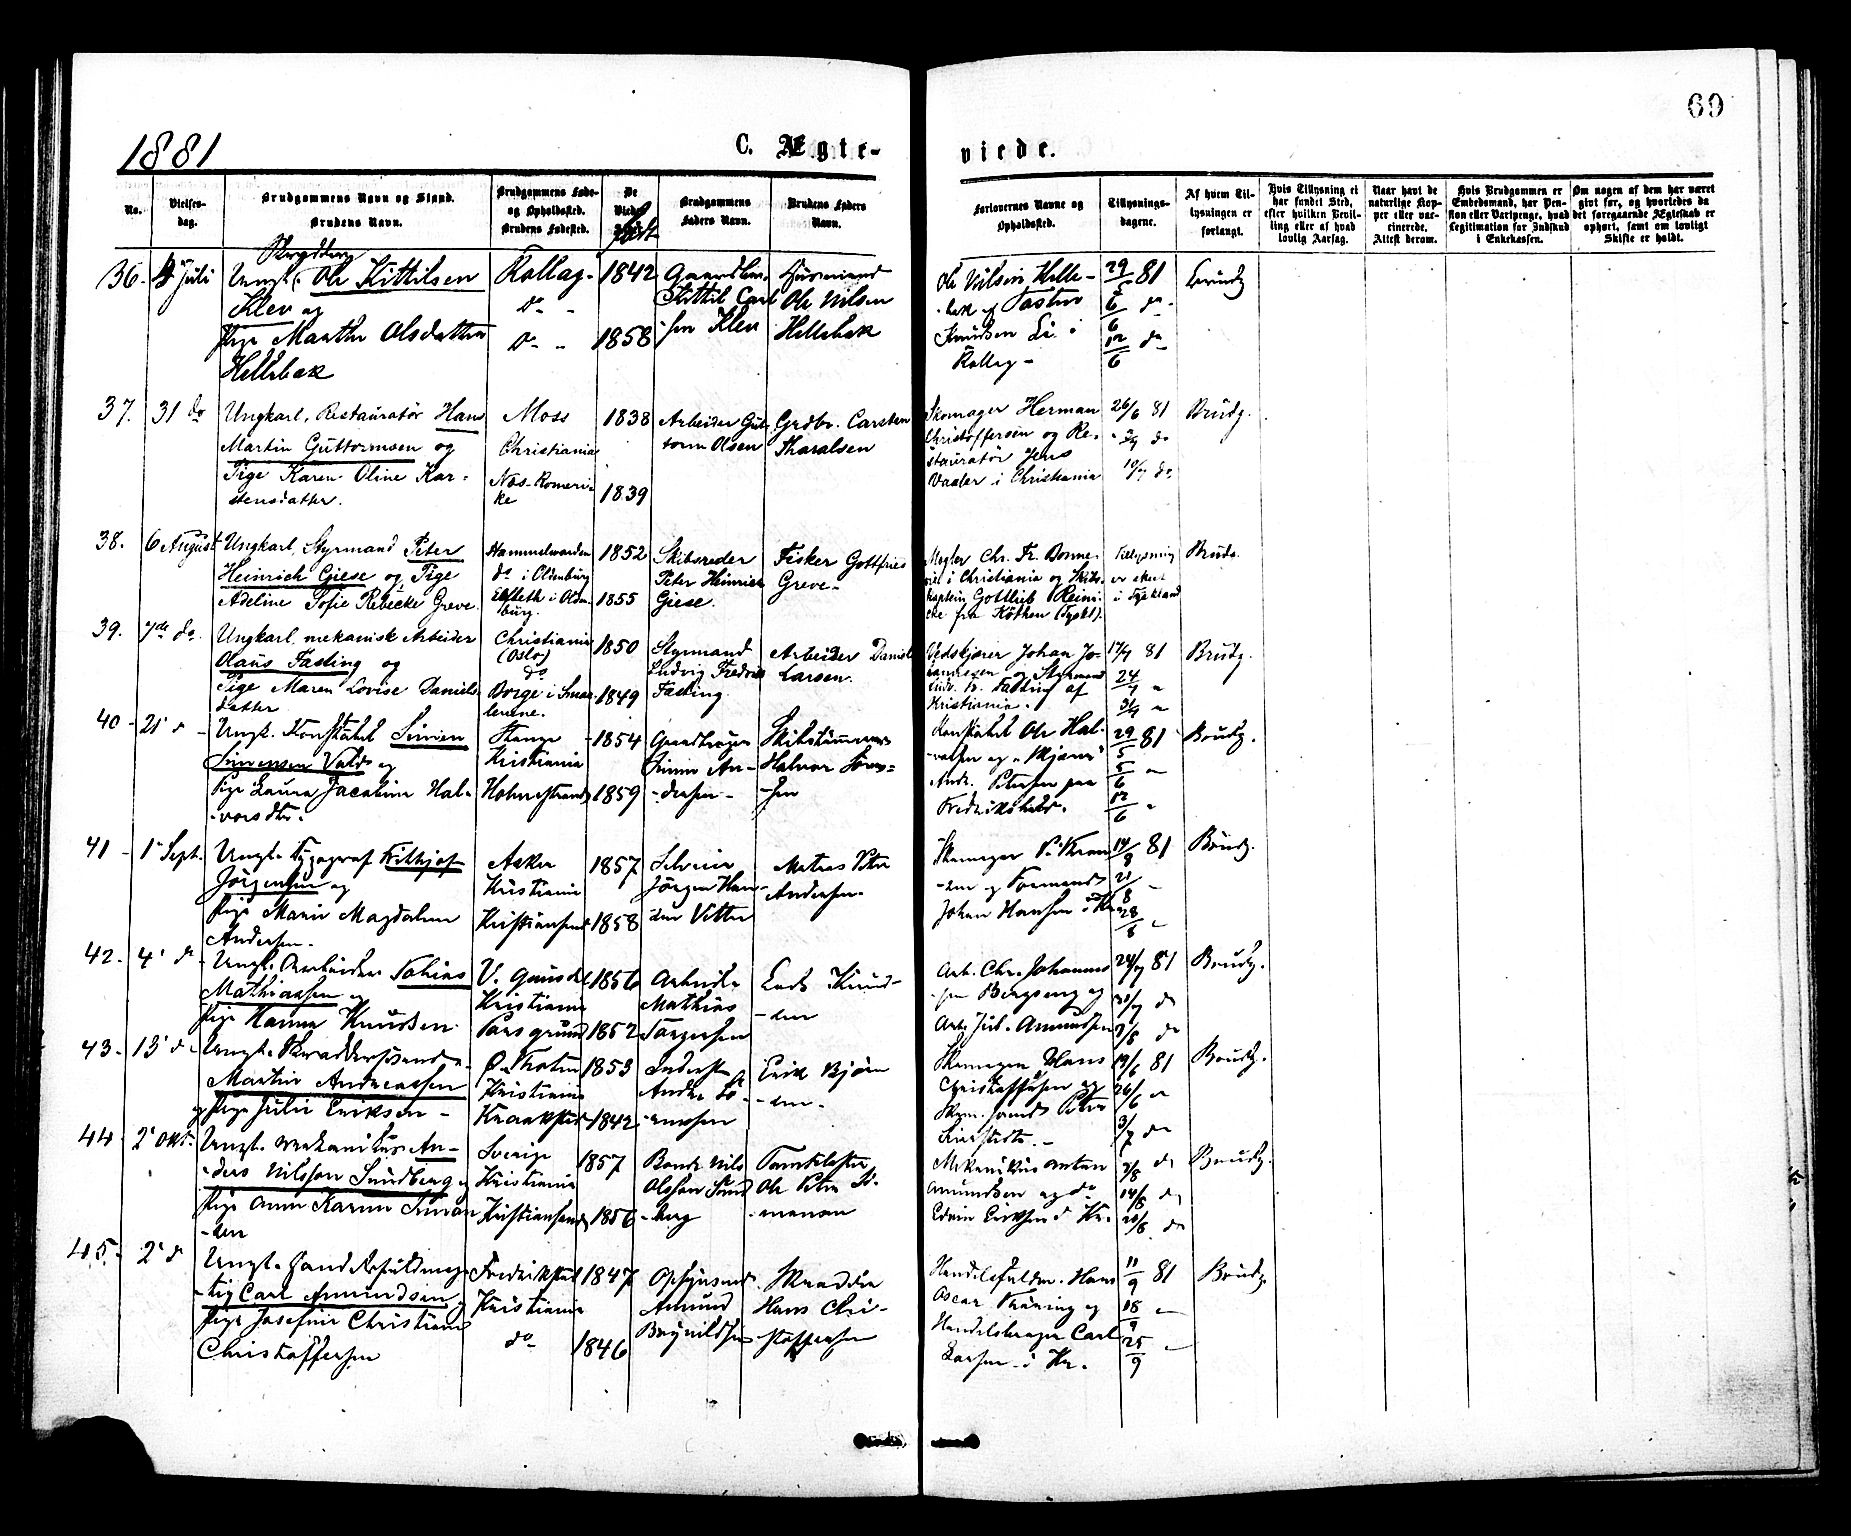 69
1881
C. Ægte-
viede.
No.
Vielses-
dag.
Brudgommens Navn og Stand.
Brudens Navn.
Brudgommens Føde-
og Opholdssted.
Brudens Fødested.
De
Vied
født
Brudgommens
Faders Navn.
Brudens Faders
Navn.
Forlovernes Navne og
Opholdssted.
Tillysnings-
dagene.
Af hvem Til-
lysningen er
forlangt.
Hvis Tillysning ei
har fundet Sted,
efter hvilken Bevil-
ling eller af hvad
lovlig Aarsag.
Naar havt de
naturlige Kop-
per eller vac-
cinerede.
Attest derom.
Hvis Brudgommen er
Embedsmand, har Pen-
sion eller Varipenge, hvad
Legitimation for Indskud
i Enkekassen.
Om nogen af dem har været
gift før, og hvorledes da
det foregaaende Ægteskab er
ophørt, samt om lovligt
Skifte er holdt.
36. Juli
Ungk. Ole Kittilsen
Klev og
Pige Marthe Olsdatter
Hellebæk
Rollag
do
do
1842
1858
Gaardbr.
Kittil Carl
sen Klev
Husmand
Ole Nilsen
Hellebæk
Ole Nilsen Helle-
bæk og
Knudsen i
Rollag
29/5 81
5/6 do
12/6 do
Brudg
37. 31 do
Ungkarl, Restauratør Hans
Martin Guttormsen og
Pige Karen Oline Kar-
stensdatter.
Moss
Christiania
Næs. Romeri-
ke
1838
1839
Arbeider Gut-
torm Olsen
Grdbr. Carsten
Tharalsen
Skomager Herman
Christoffersen og Re-
stauratør Jens
Vaaler i Christiania
26/6 81
3/7 do
10/7 do
Brudg.
38. 6 August
Ungkarl, Styrmand Peter
Heinrich Giese og Pige
Adeline Sofie Rebecke Greve.
Hammelwarden
do i Oldenburg
Elsfleth i Olden-
burg.
1852
1855
Skibsreder
Peter Heinrich
Giese.
Fisker Gottfried
Greve
Megler Chr. Fr. Bonne-
vie i Christiania og Skibs-
kaptein Gottlieb Reini-
cke fra Köthen (Tyskl).
Tillysning
er skeet
i Tyskland
Brudg.
39. 7de do.
Ungkarl, mekanisk Arbeider
Olaus Fasting og
Pige Maren Lovise Daniels-
datter
Christiania
(Oslo)
do
Borge i Smaa-
lenene.
1850
1849
Styrmand
Ludvig Fredrik
Fasting.
Arbeider Daniel
Larsen.
Vedskjærer Johan Jo-
hannesen og Styrmand
Ludv. Fr. Fasting af
Kristiania.
17/7 81
24/7 "
31/7 "
Brudg.
40 - 21 d
Ungk. Konstabel Simen
Simensen Vald og
Pige Laura Jacobine Hal-
vorsdtr.
Stange
Kristiania
Holmestrand
1854
1859
Gaardbruger
Simen An-
dersen
Skibstømmerm
Halvor Søren-
sen
Konstabel Ole Hal-
vorsen og
Andr. Petersen paa
Fredriksholm.
29/5 81
5/6 "
12/6 "
Brudg.
41 - 1 Sept.
Ungk. Typograf Fithjof
Jörgensen og
Pige Marie Magdalene
Andersen.
Asker
Kristiania
Kristiansund
1857
1858
Selveier
Jörgen Han-
sen Vetter
Matros Peter
Andersen
Skomager P. Kran
sen og Formand
Johan Hansen i Kr.
14/8 81
21/8
28/8 "
Brudg.
42. 4 d
Ungk. Arbeider Tobias
Mathiassen og
Pige Hanna Knudsen.
V. Gausdal
Kristiania
Porsgrund
1856
1852
Arbeider
Mathias
Torgersen
Lars Knud-
sen
Arb. Chr. Johannes
sen Bergseng og
Arb. Jul. Amundsen
24/7 81
31/7 do
7/8 do
Brudg.
43. 13 d
Ungk. Skræddersvend
Martin Andreassen
og Pige Julie Eriksen
Ø. Toten
Kristiania
Kraakstad
1853
1842
Inderst
Andr. Sö-
rensen
Erik Bjørn
sen.
Skomager Hans
Christoffersen og
Skom. svend Peter
19/6 81
26/6 "
3/7 do
Brudg.
44 2 Okt.
Ungk. Mekanikus An-
ders Nilsson Sundberg og
Pige Anne Karine Simon
sen
Sverige
Kristiania
Kristiansand
1857
1856
Bonde Nils
Olsson Sund
berg
Ole Peter Si-
monsen
Mekanikus Anton
Amundsen og do
Edvin Eriksen i Kr.
7/8 do
14/8 do
21/8 do
Brudg.
45. 2 d
Ungk. Handelsfuldmæg-
tig Carl Amundsen og
Pige Josefine Christiane
Christoffersen
Fredrikstad
Kristiania
do
1847
1846
Opsynsmd.
Amund
Brynildsen
Skrædder
Hans Chri-
stoffersen
Handelsfuldm. Hans
Oscar Thüring og
Handelsborger Carl
Larsen i Kr.
11/9 81
18/9 "
25/9
Brudg